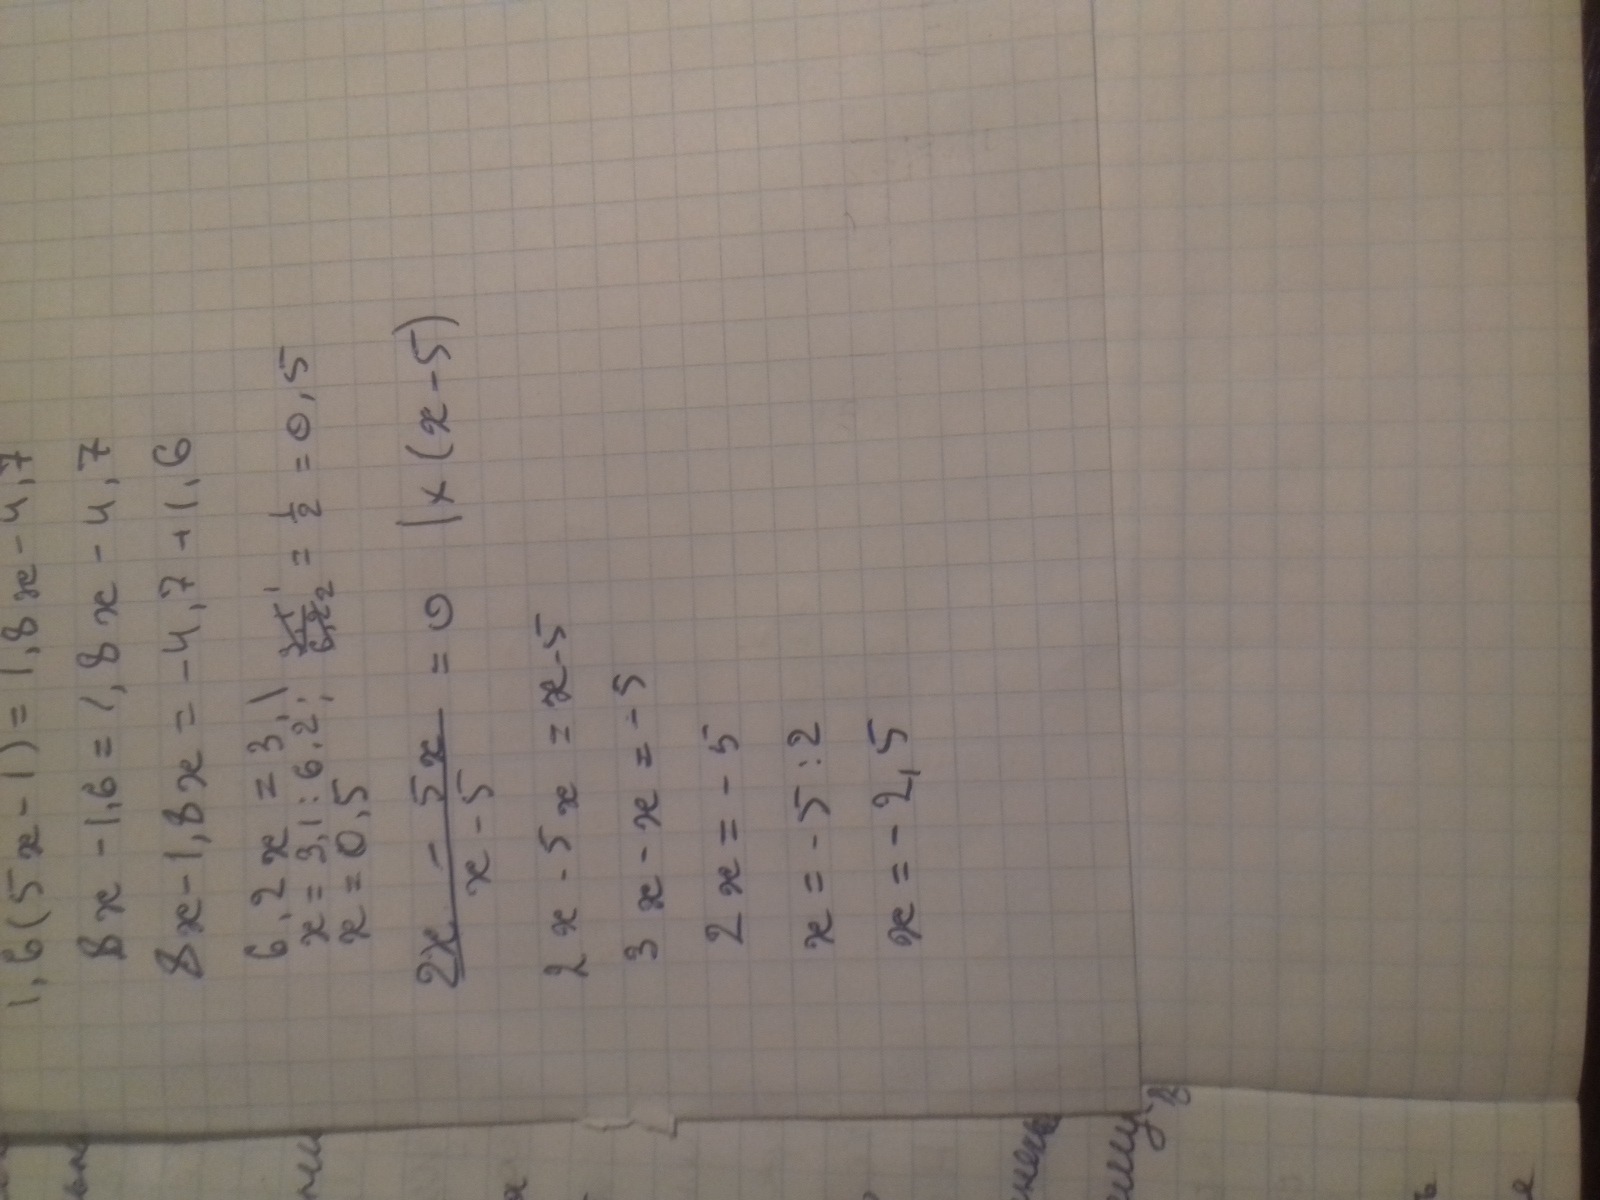 1,6(5x-1)=1,8x-4,7
8x-1,6=1,8x-4,7
8x-1,8x=-4,7+1,6
6,2x=3,1
x=3,1:6,2; 3,1/6,2 1 2 = 1/2 = 0,5
x=0,5
2x-5x/x-5 = 0 |x(x-5)
2x-5x=x-5
3x-x=-5
2x=-5
x=-5:2
x=-2,5